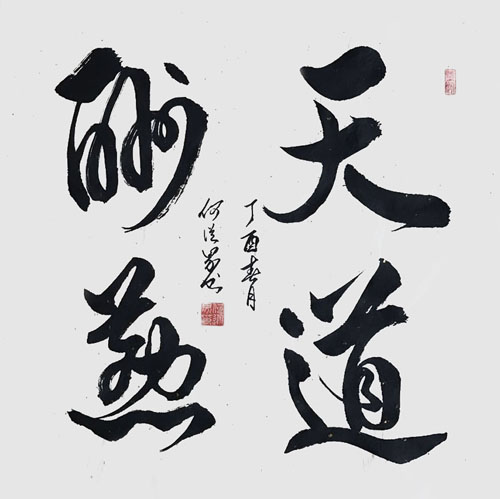 天道
酬懃
丁酉春月
何书